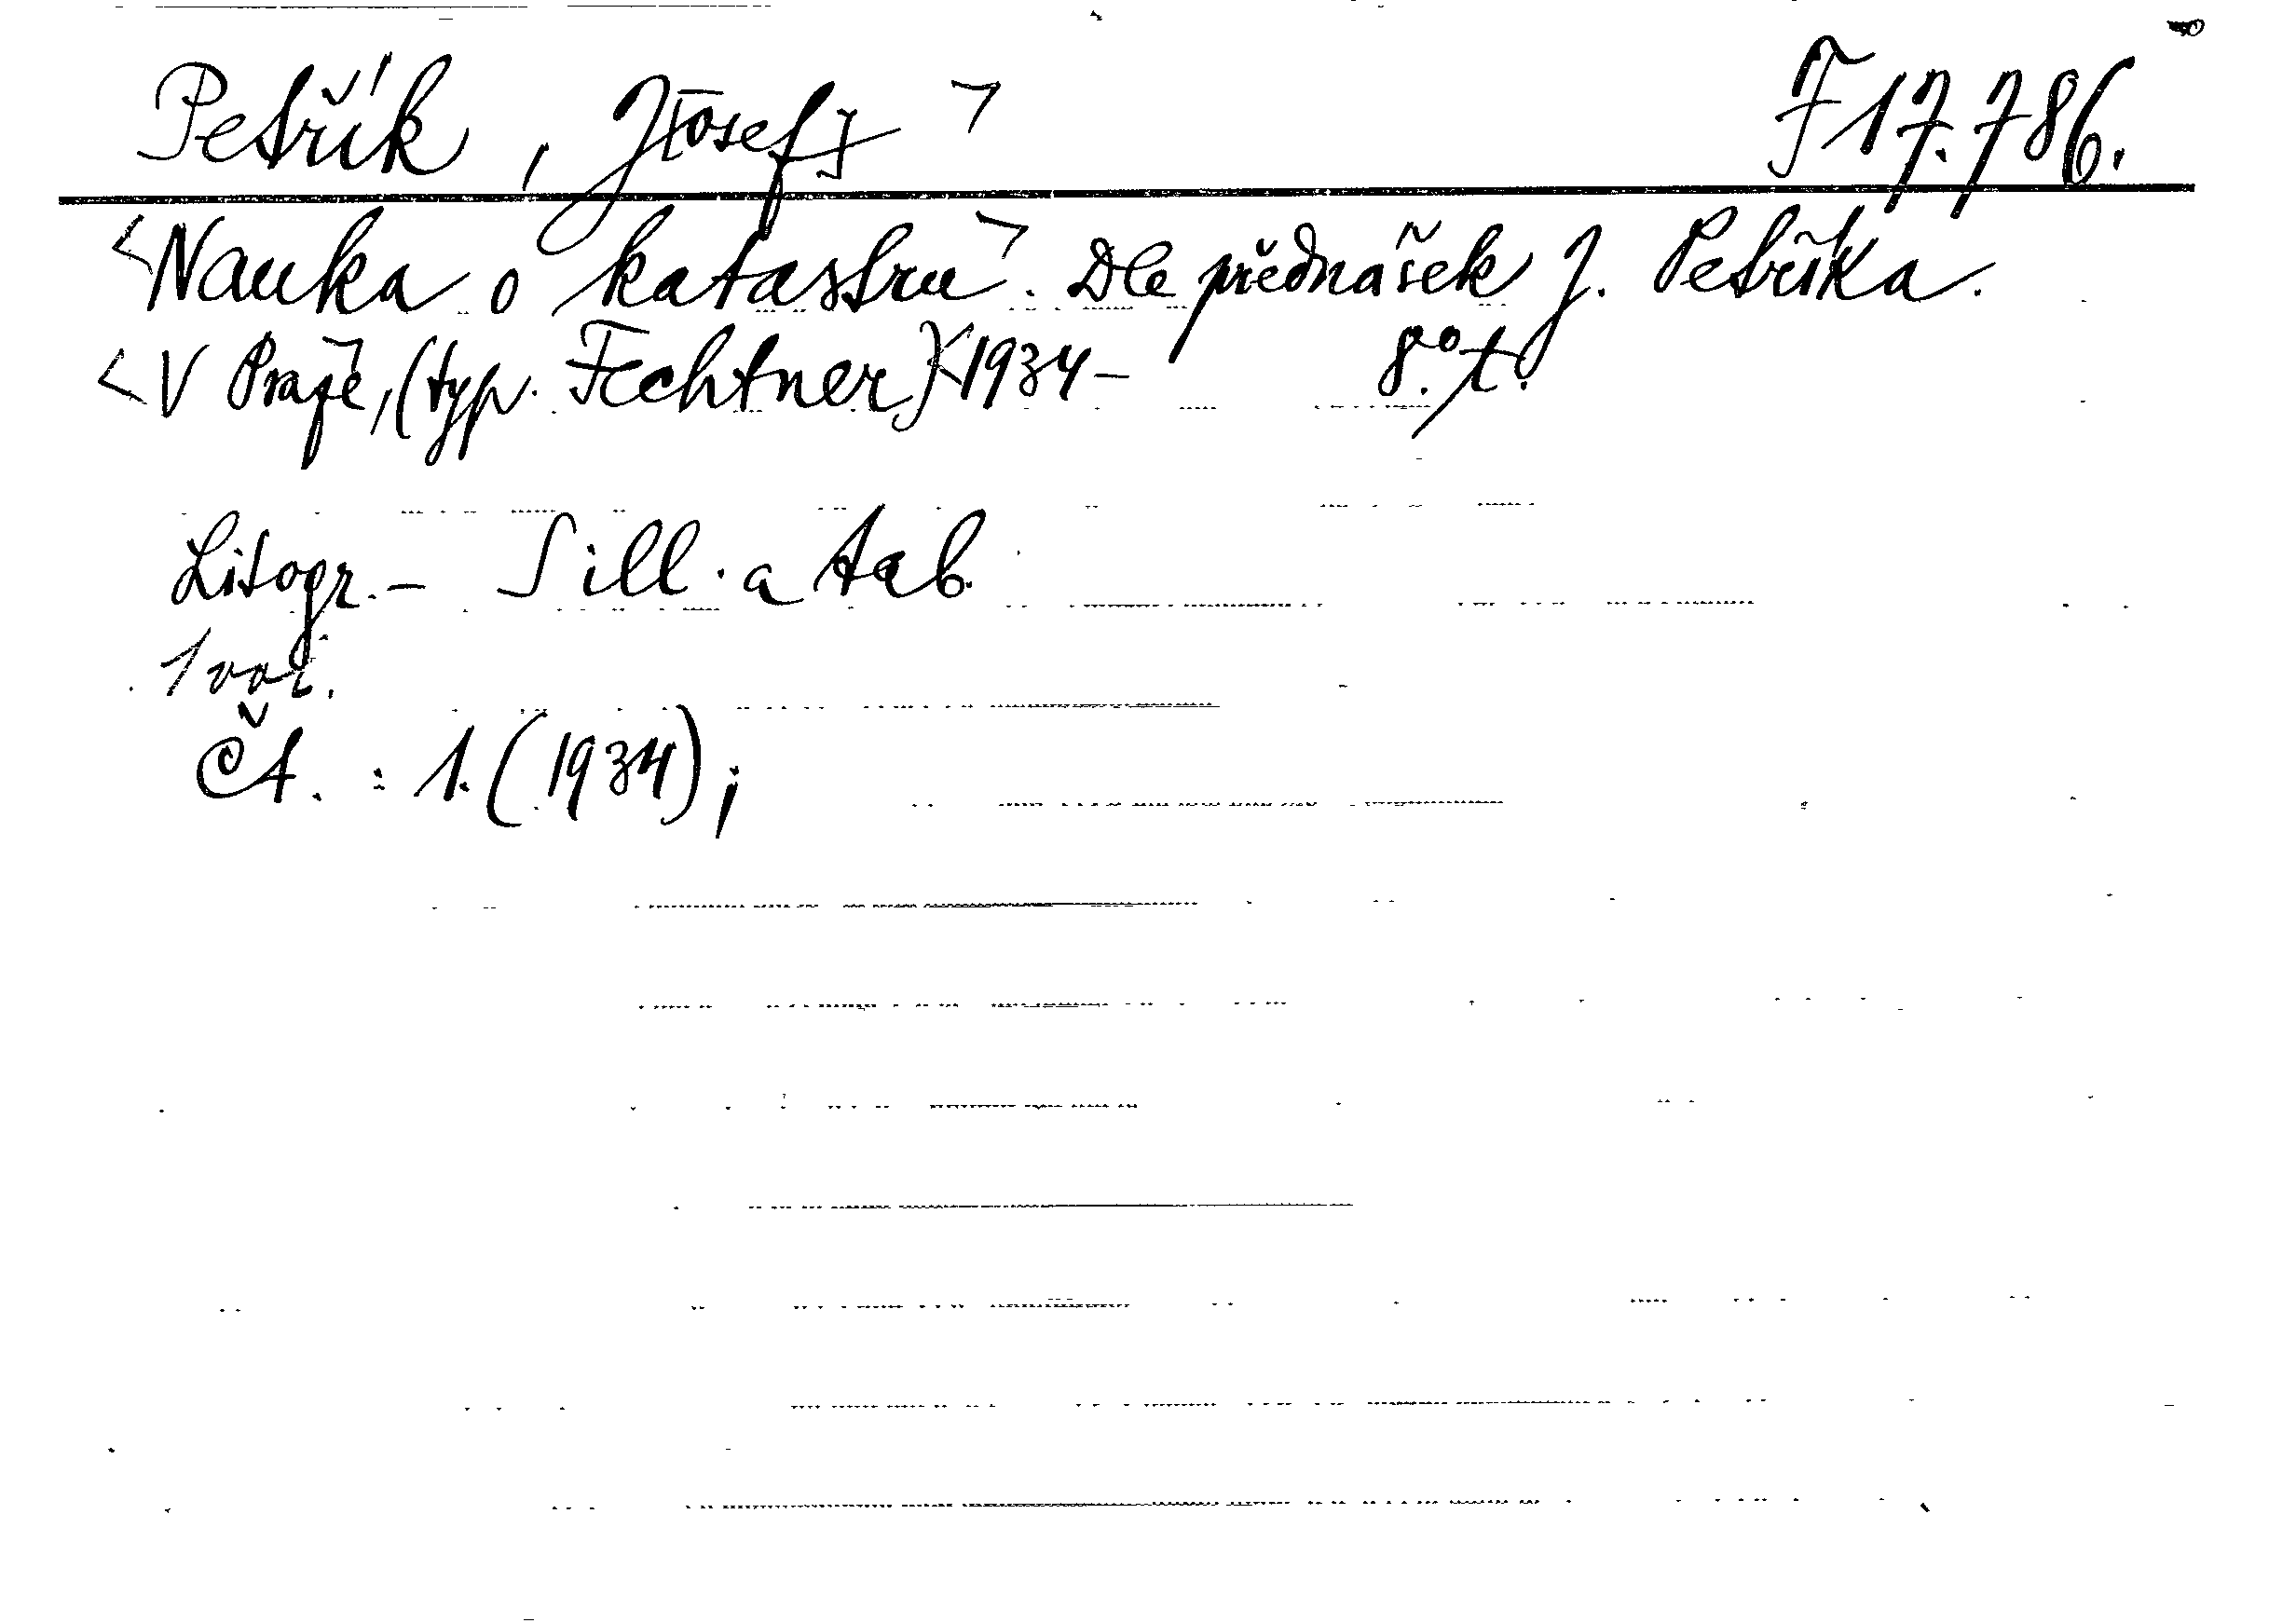 Petřík, J[osef] F 17.786.
<Nauka o katastru>. Dle přednášek J. Petříka.
<V Praze, (typ. Fechtner) <1934- 8.° t.
Litogr. - S ill. a tab.
Čt. : 1. (1934);